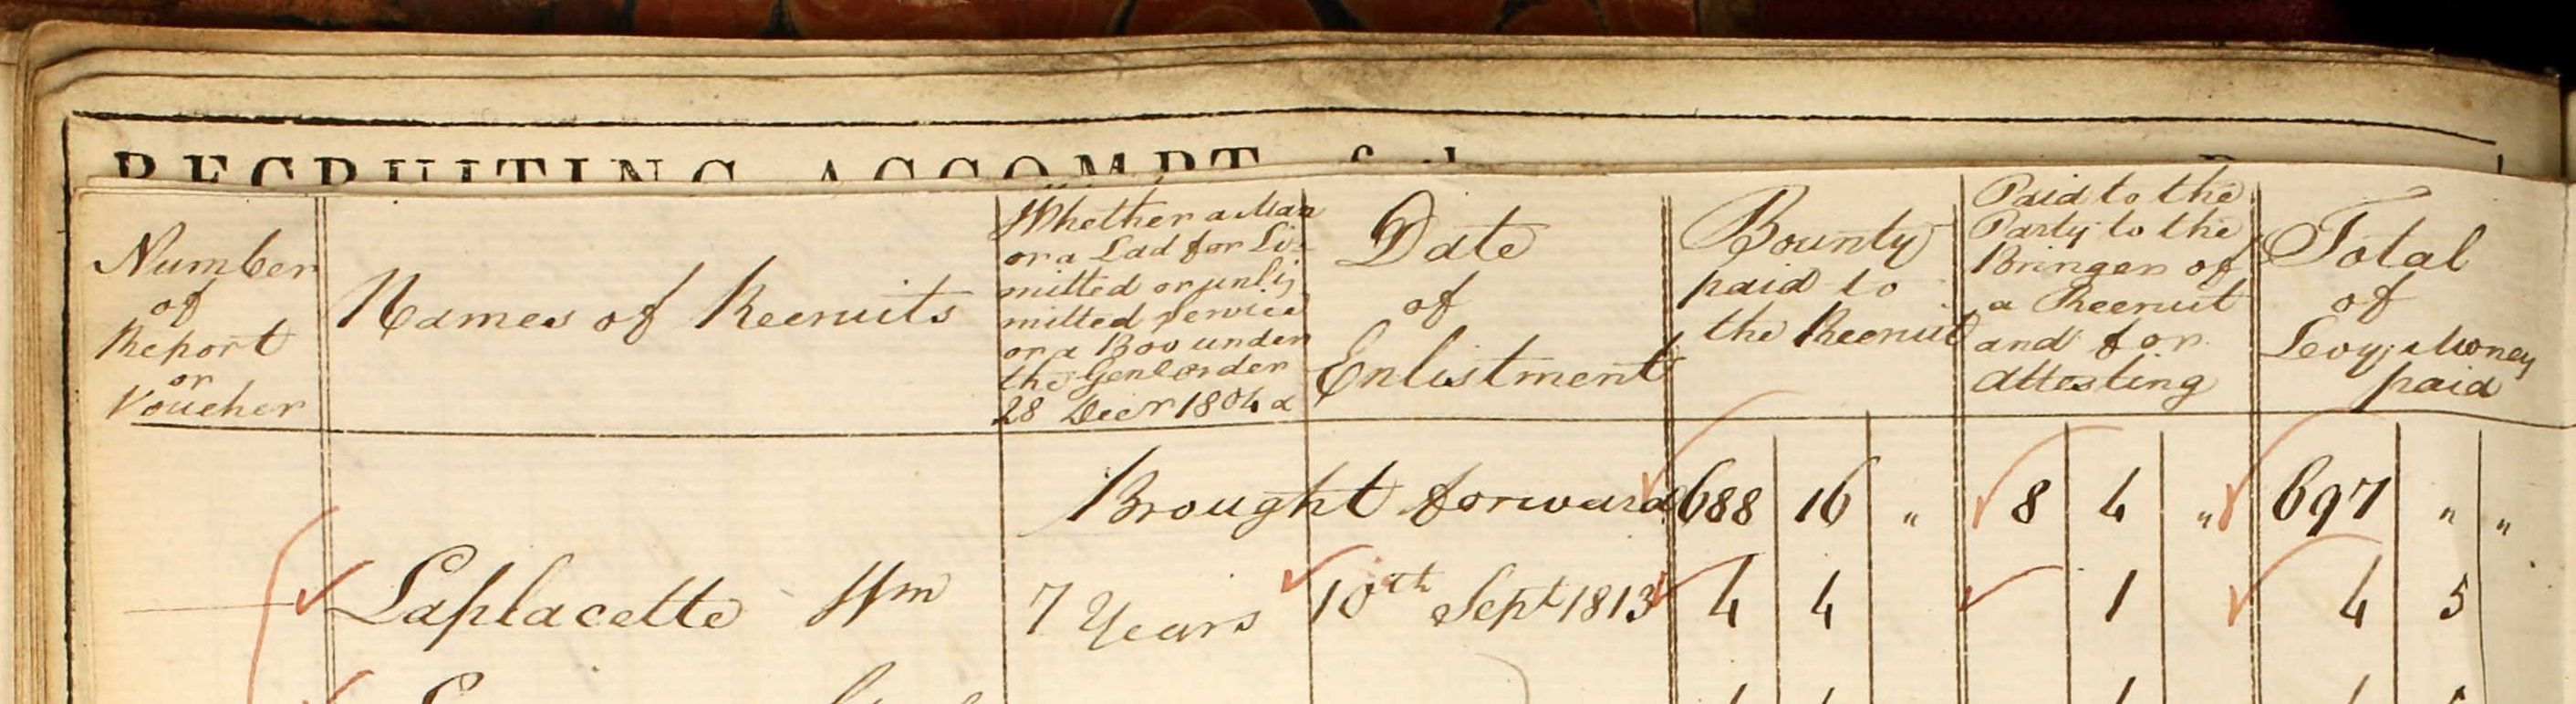 RECRUITING ACCOMPT
Number
of
Report
or
Voucher
Names of Recruits
Whether a Man
or a Lad for Li-
mitted or unli
mitted service
or a Boy under
the Genl order
28 Decr 1804
Date
of
Enlistment
Bounty
paid to
the Recruit
Paid to the
Party to the
Bringer of
a Recruit
and for
Attesting
Total
of
Levy Money
paid
Brought forward 688 16 " 8 4 " 697 " "
Laplacette Wm 7 Years 10th Sept 1813 4 4 1 4 5